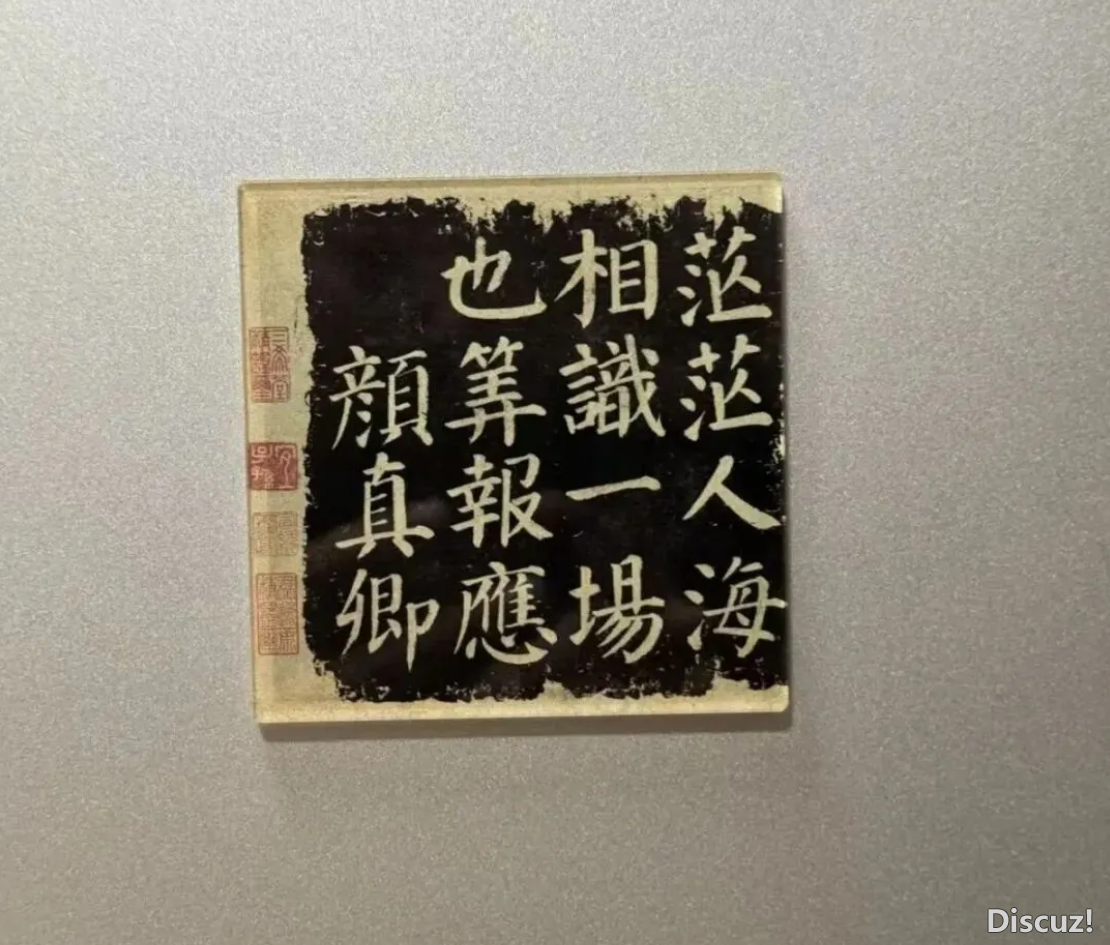 茫茫人海
相識一場
也筭報應
顔真卿
Discuz!